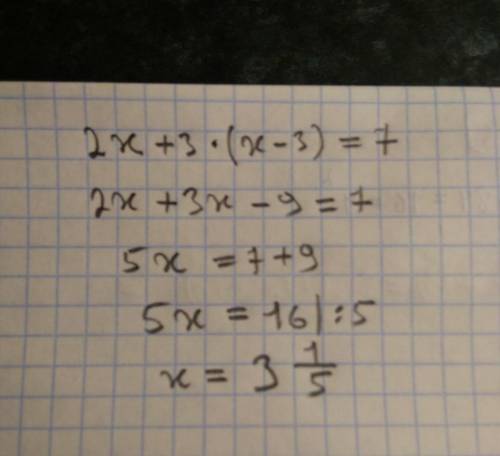 2x + 3 · (x - 3) = 7
2x + 3x - 9 = 7
5x = 7 + 9
5x = 16 | : 5
x = 3 1/5